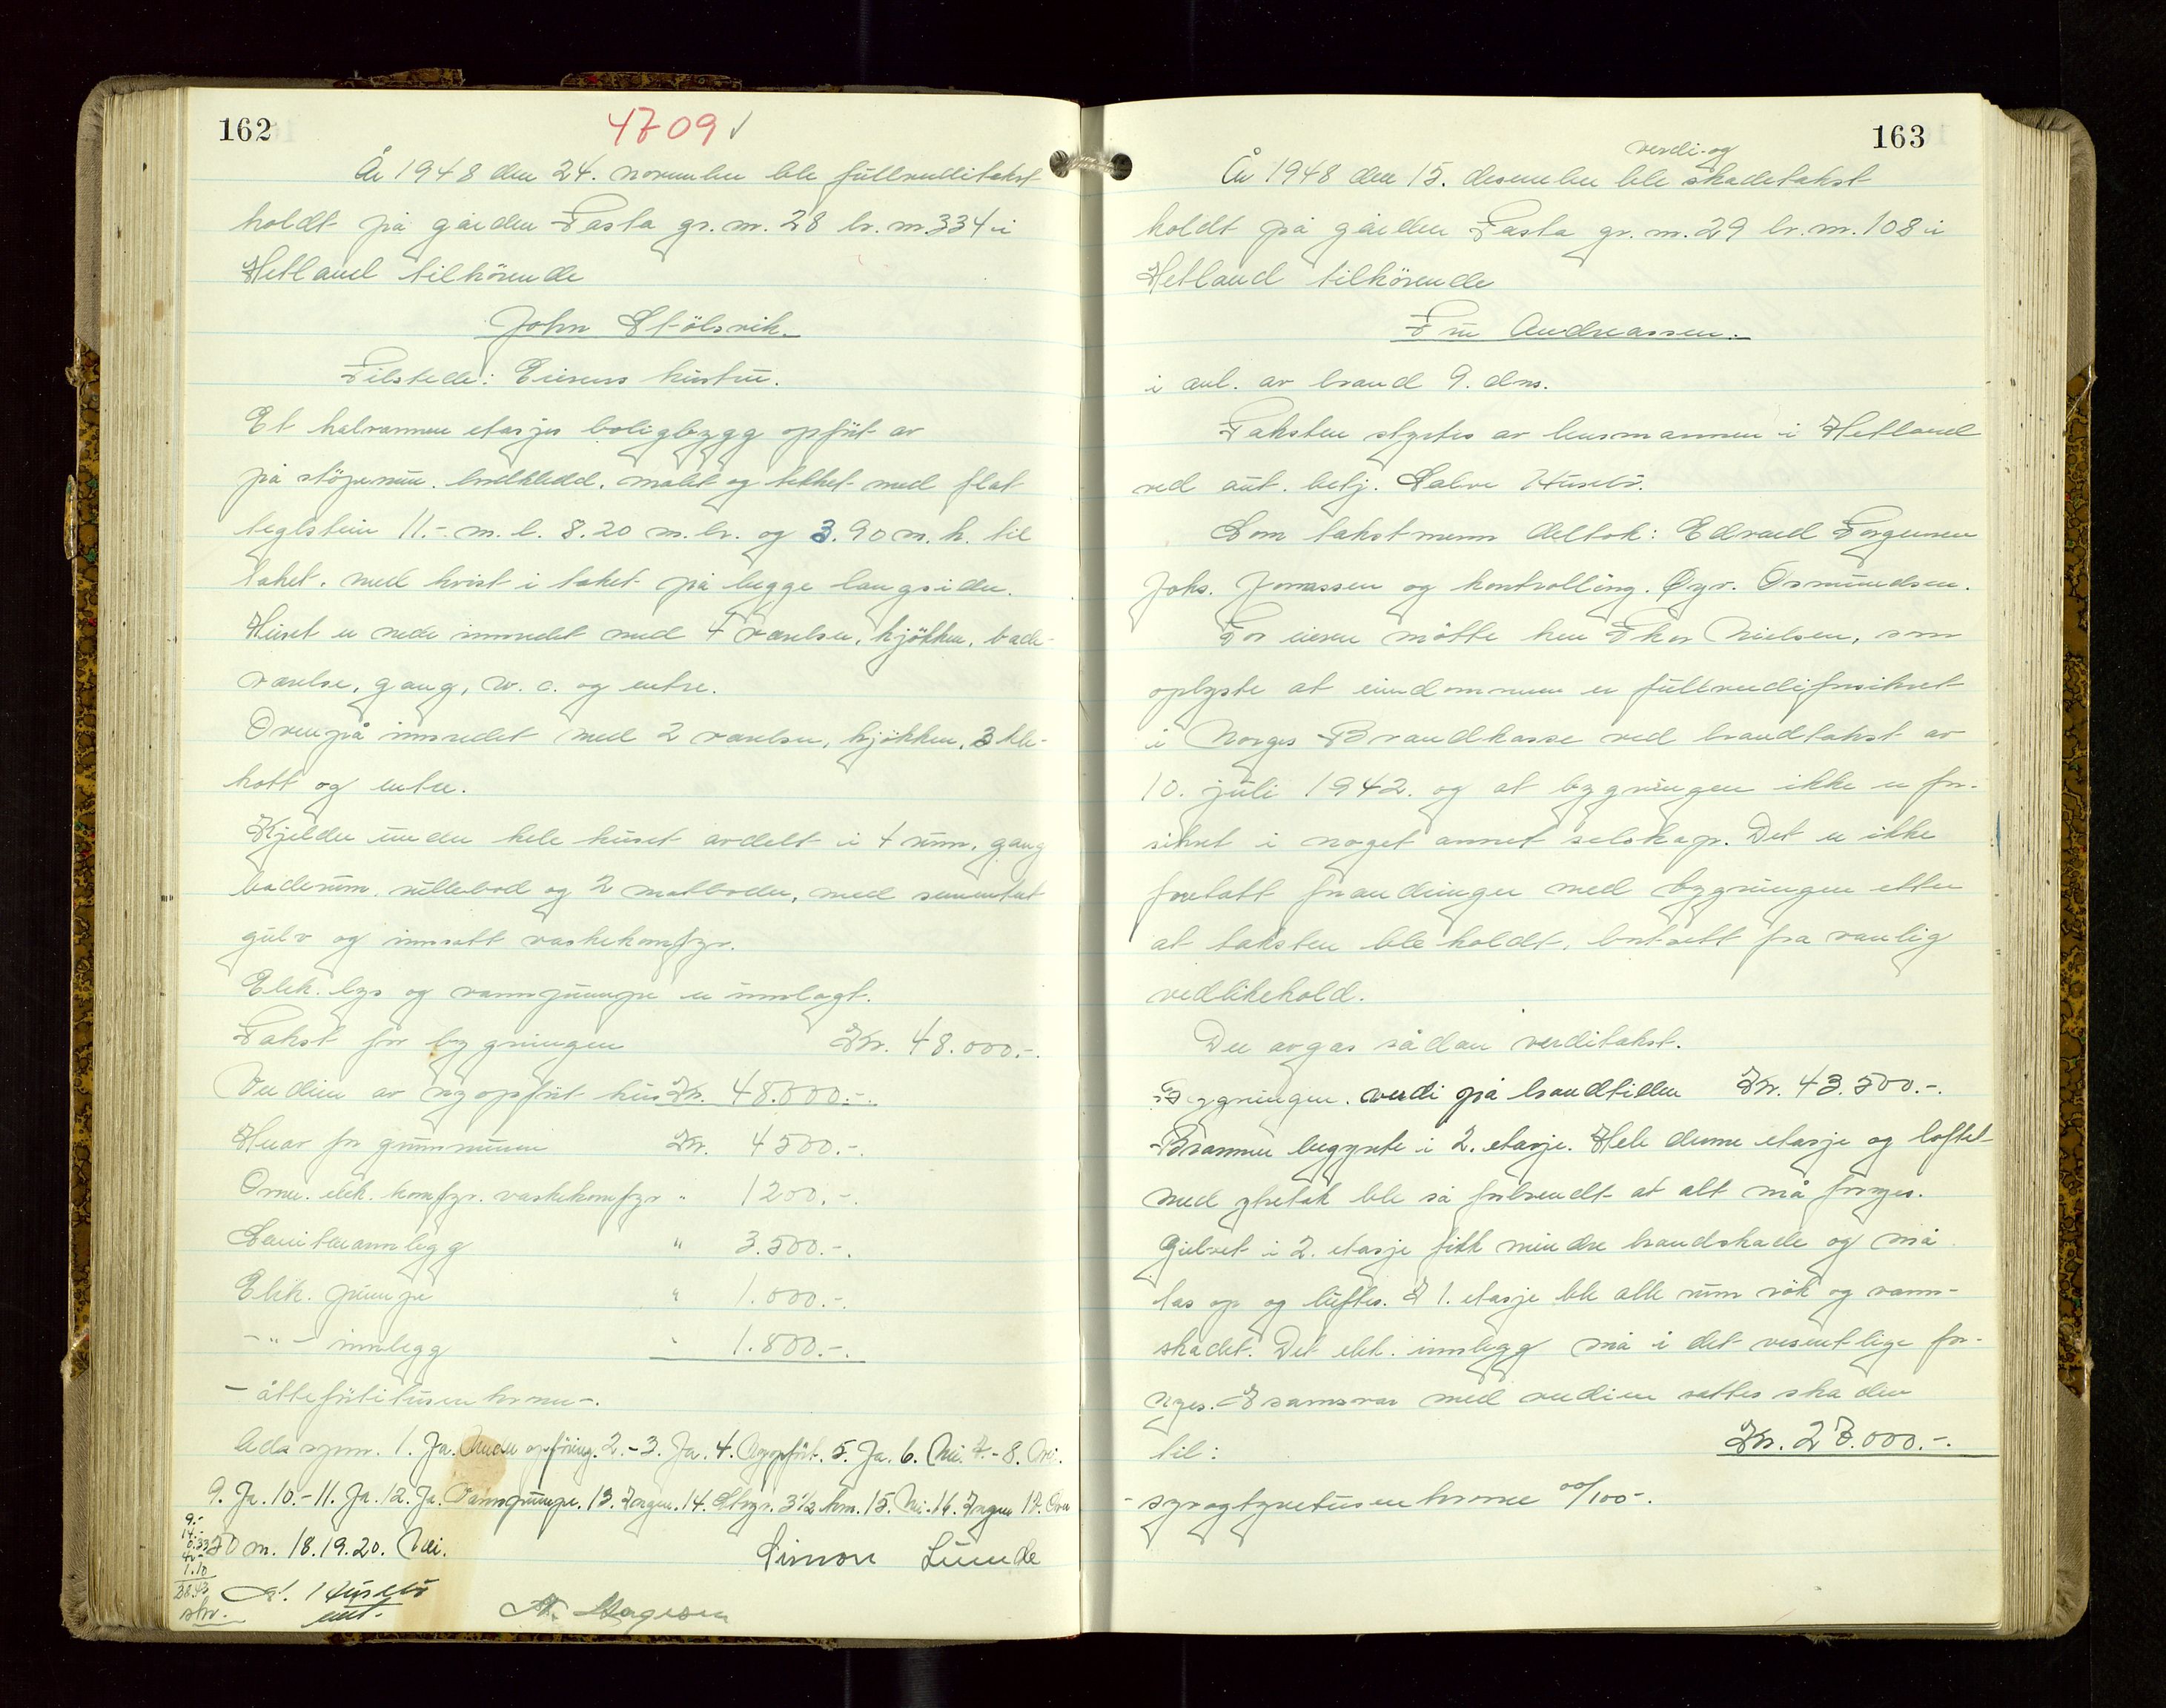 162
4709 ✓
År 1948 den 24. november ble fullverditakst
holdt på garden Tasta gr. nr. 28 br. nr. 334 i
Hetland tilhörende
John Stölsvik.
Tilstede: Eierens hustru.
Et halvannen etasjes boligbygg opfört av
på stöpemur. bordkledd. malt og tekket med flat
teglstein 11.- m. l. 8.20 m. br. og 3.90 m. h. til
taket. med kvist i taket på begge langsider.
Huset er nede innredet med 4 værelser, kjökken, bade-
værelse, gang, w. c. og entre.
Ovenpå innredet med 2 værelser, kjökken, 3 kle-
kott og entre.
Kjelder under hele huset avdelt i 4 rum, gang
baderum. rullebod og 2 matboder, med sementert
gulv og innsatt vaskekomfyr.
Elek. lys og vannpumpe er innlagt.
Takst for bygningen Kr. 48.000.-.
Verdien av nyopfört hus Kr. 48.000.-.
Herav for grunnmuren Kr. 4500.-.
Ovner. elek. komfyr. vaskekomfyr " 1200.-.
Sanitæranlegg " 3.500.-.
Elek. pumpe " 1.000.-.
-"- innlegg " 1.800.-.
- åtteförtitusen kroner -.
Leda spm. 1. Ja. Under opföring. 2.-3. Ja. 4. Nyopfört. 5. Ja. 6. Nei. 7.-8. Nei.
9. Ja. 10.-11. Ja. 12. Ja. Vannpumpe. 13. Ingen. 14. Stvgr. 3½ km. 15. Nei. 16. Ingen 17. Over
70 m. 18. 19. 20. Nei.
9.-
14.-
0.33
4.-
1.10
28.43
skr.
S. Husebö
aut.
Simon Lunde
163
verdi-og
År 1948 den 15. desember ble skadetakst
holdt på garden Tasta gr. nr. 29 br. nr. 108 i
Hetland tilhörende
Fru Andreassen.
i anl. av brand 9. dns.
Taksten styrtes av lensmannen i Hetland
ved aut. betj. Salve Husebö.
Som takstmenn deltok: Edvard Torgersen
Johs. Jonassen og kontrolling. Öyv. Osmundsen.
For eieren mötte herr Thor Nielsen, som
oplyste at eiendommen er fullverdiforsikret
i Norges Brandkasse ved brandtakst av
10. juli 1942. og at bygningen ikke er for-
sikret i noget annet selskap. Det er ikke
foretatt forandringer med bygningen etter
at taksten ble holdt, bortsett fra vanlig
vedlikehold.
Der avgas sådan verditakst.
Bygningen. verdi på brandtiden Kr. 43.500.-.
Brannen begynte i 2. etasje. Hele denne etasje og loftet
med yttertak ble så forbrendt at alt må fornyes.
Gulvet i 2. etasje fikk mindre brandskade og må
tas op og luftes. I 1. etasje ble alle rum rök og vann-
skadet. Det elek. innlegg må i det vesentlige for-
nyes. I samsvar med verdien settes skaden
til: Kr. 27.000.-.
- syvogtyvetusen kroner 00/100-.